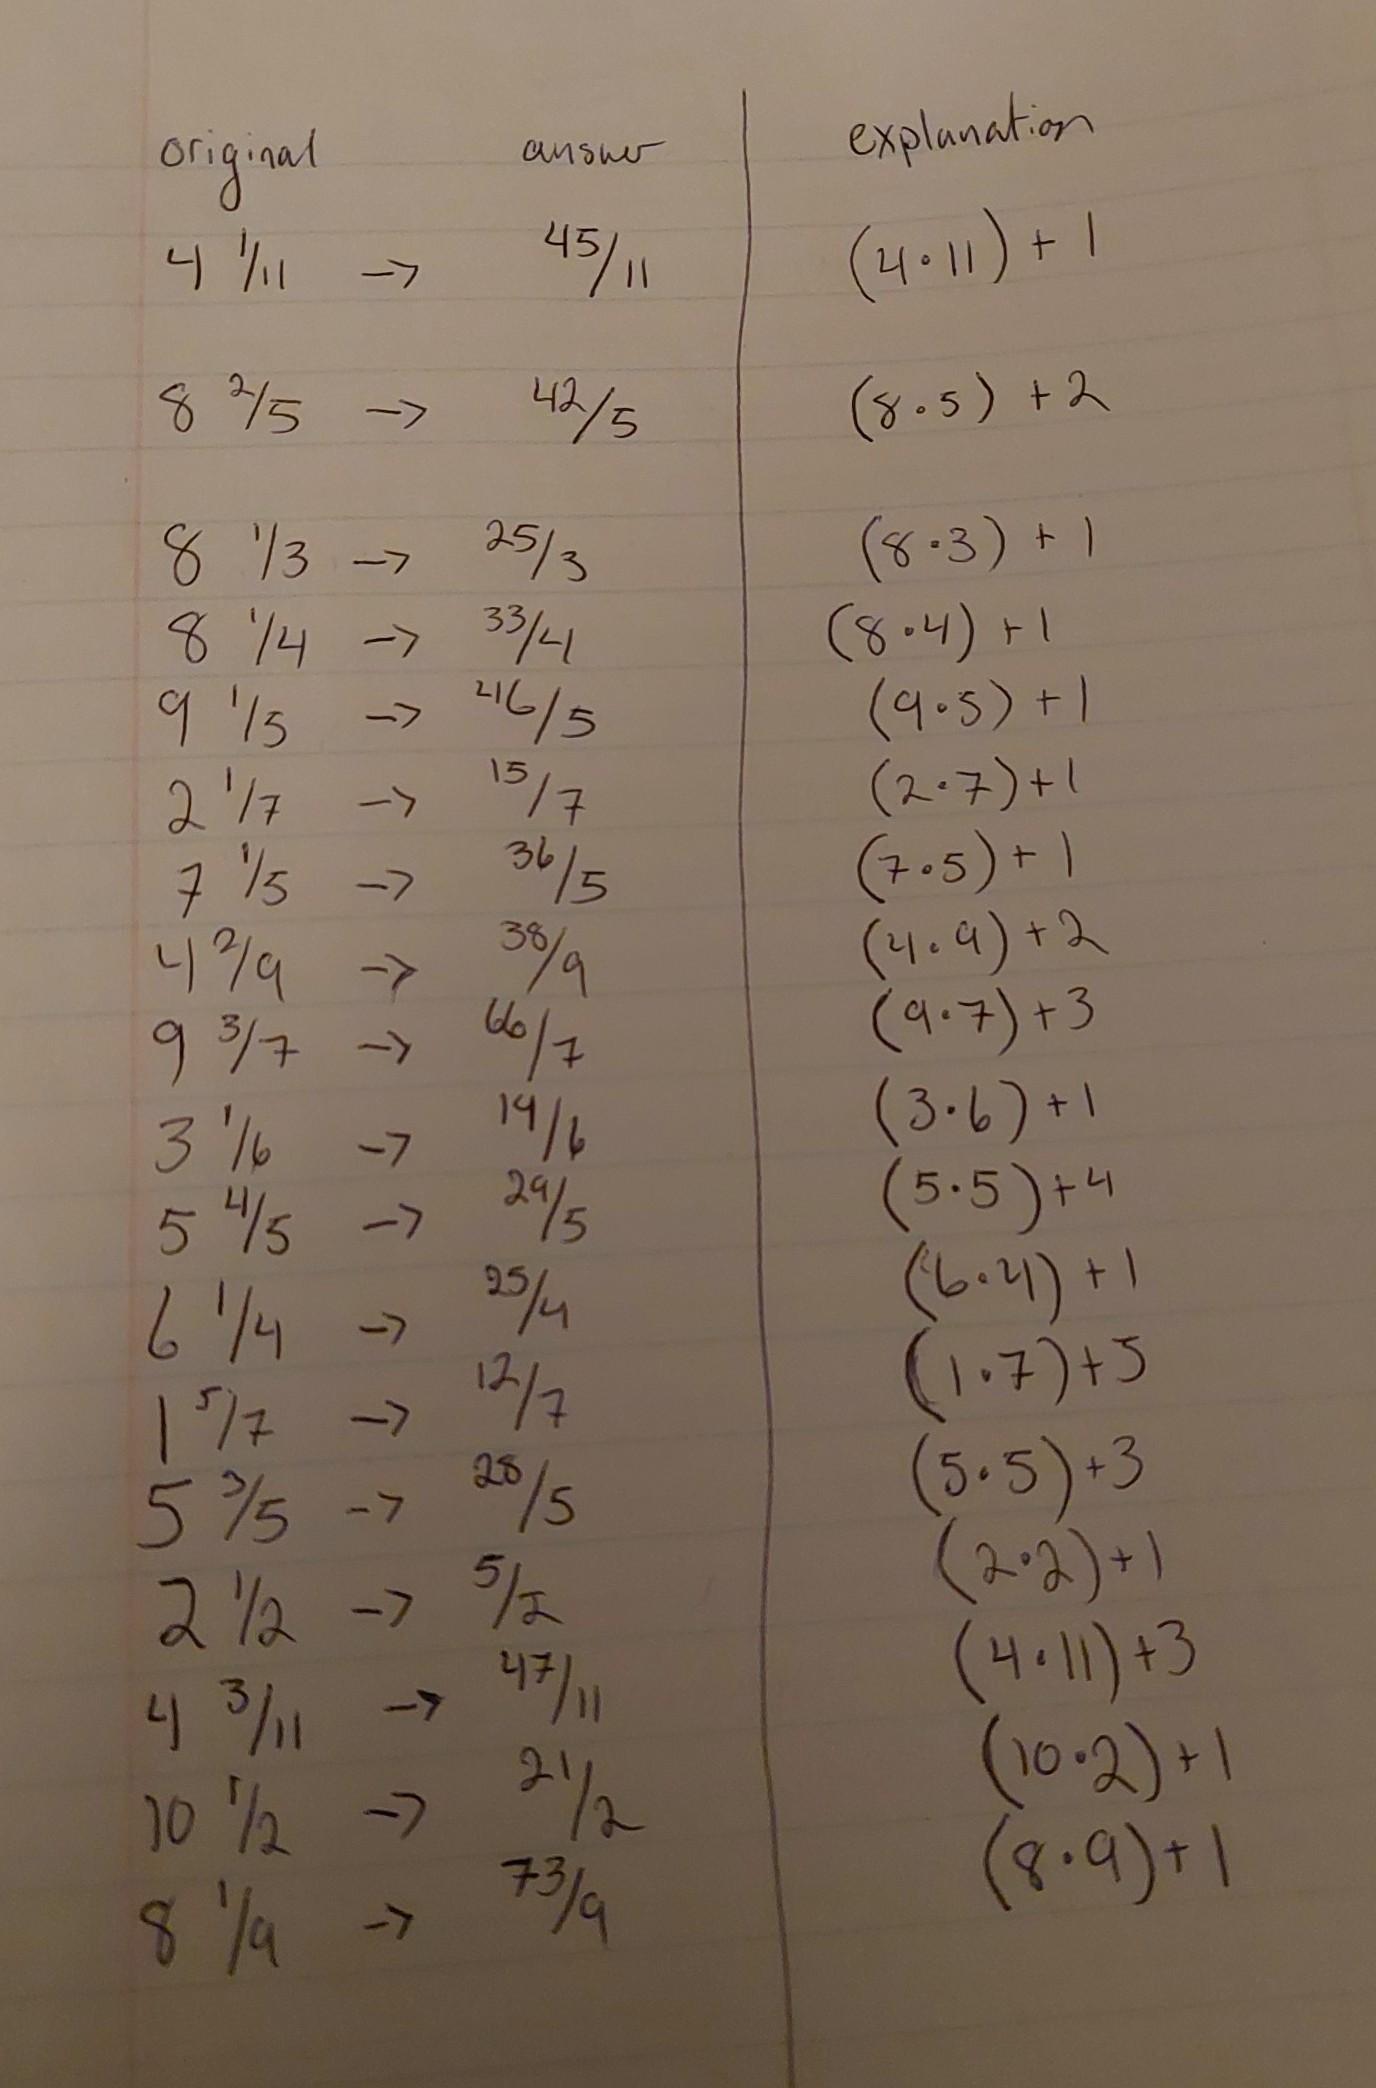 original answer explanation
4 1/11 -> 45/11 (4·11) + 1
8 2/5 -> 42/5 (8·5) + 2
8 1/3 -> 25/3 (8·3) + 1
8 1/4 -> 33/4 (8·4) + 1
9 1/5 -> 46/5 (9·5) + 1
2 1/7 -> 15/7 (2·7) + 1
7 1/5 -> 36/5 (7·5) + 1
4 2/9 -> 38/9 (4·9) + 2
9 3/7 -> 66/7 (9·7) + 3
3 1/6 -> 19/6 (3·6) + 1
5 4/5 -> 29/5 (5·5) + 4
6 1/4 -> 25/4 (6·4) + 1
1 5/7 -> 12/7 (1·7) + 5
5 3/5 -> 28/5 (5·5) + 3
2 1/2 -> 5/2 (2·2) + 1
4 3/11 -> 47/11 (4·11) + 3
10 1/2 -> 21/2 (10·2) + 1
8 1/9 -> 73/9 (8·9) + 1